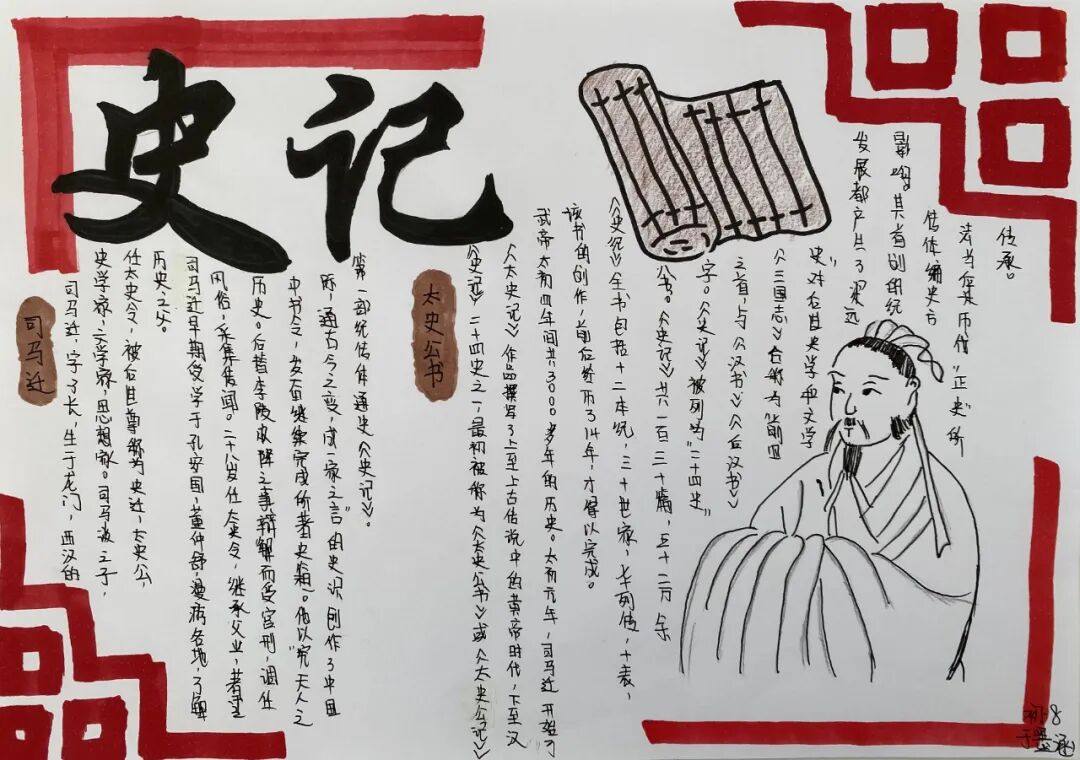 史记
司马迁
司马迁,字子长,生于龙门,西汉的
史学家,文学家,思想家。司马谈之子,
任太史令,被后世尊称为史迁,太史公,
历史之父。
司马迁早期受学于孔安国,董仲舒,漫游各地,了解
风俗,采集传闻。二十八岁任太史令,继承父业,著述
历史。后替李陵败降之事辩解而受宫刑,调任
中书令,发奋继续完成所著史籍。他以"究天人之
际,通古今之变,成一家之言"的史识创作了中国
第一部纪传体通史《史记》。
太史公书
《史记》二十四史之一,最初被称为《太史公书》或《太史公记》
《太史记》作品撰写了上至上古传说中的黄帝时代,下至汉
武帝太初四年间共3000多年的历史。太初元年,司马迁开始了
该书的创作,前后经历了14年,才得以完成。
《史记》全书包括十二本纪,三十世家,七十列传,十表,
八书。《史记》共一百三十篇,五十二万余
字。《史记》被列为"二十四史"
之首,与《汉书》《后汉书》
《三国志》合称为"前四
史"对后世史学和文学
发展都产生了深远
影响其首创的纪
传体编史方
法为后来历代"正史"所
传承。
初8
于墨涵